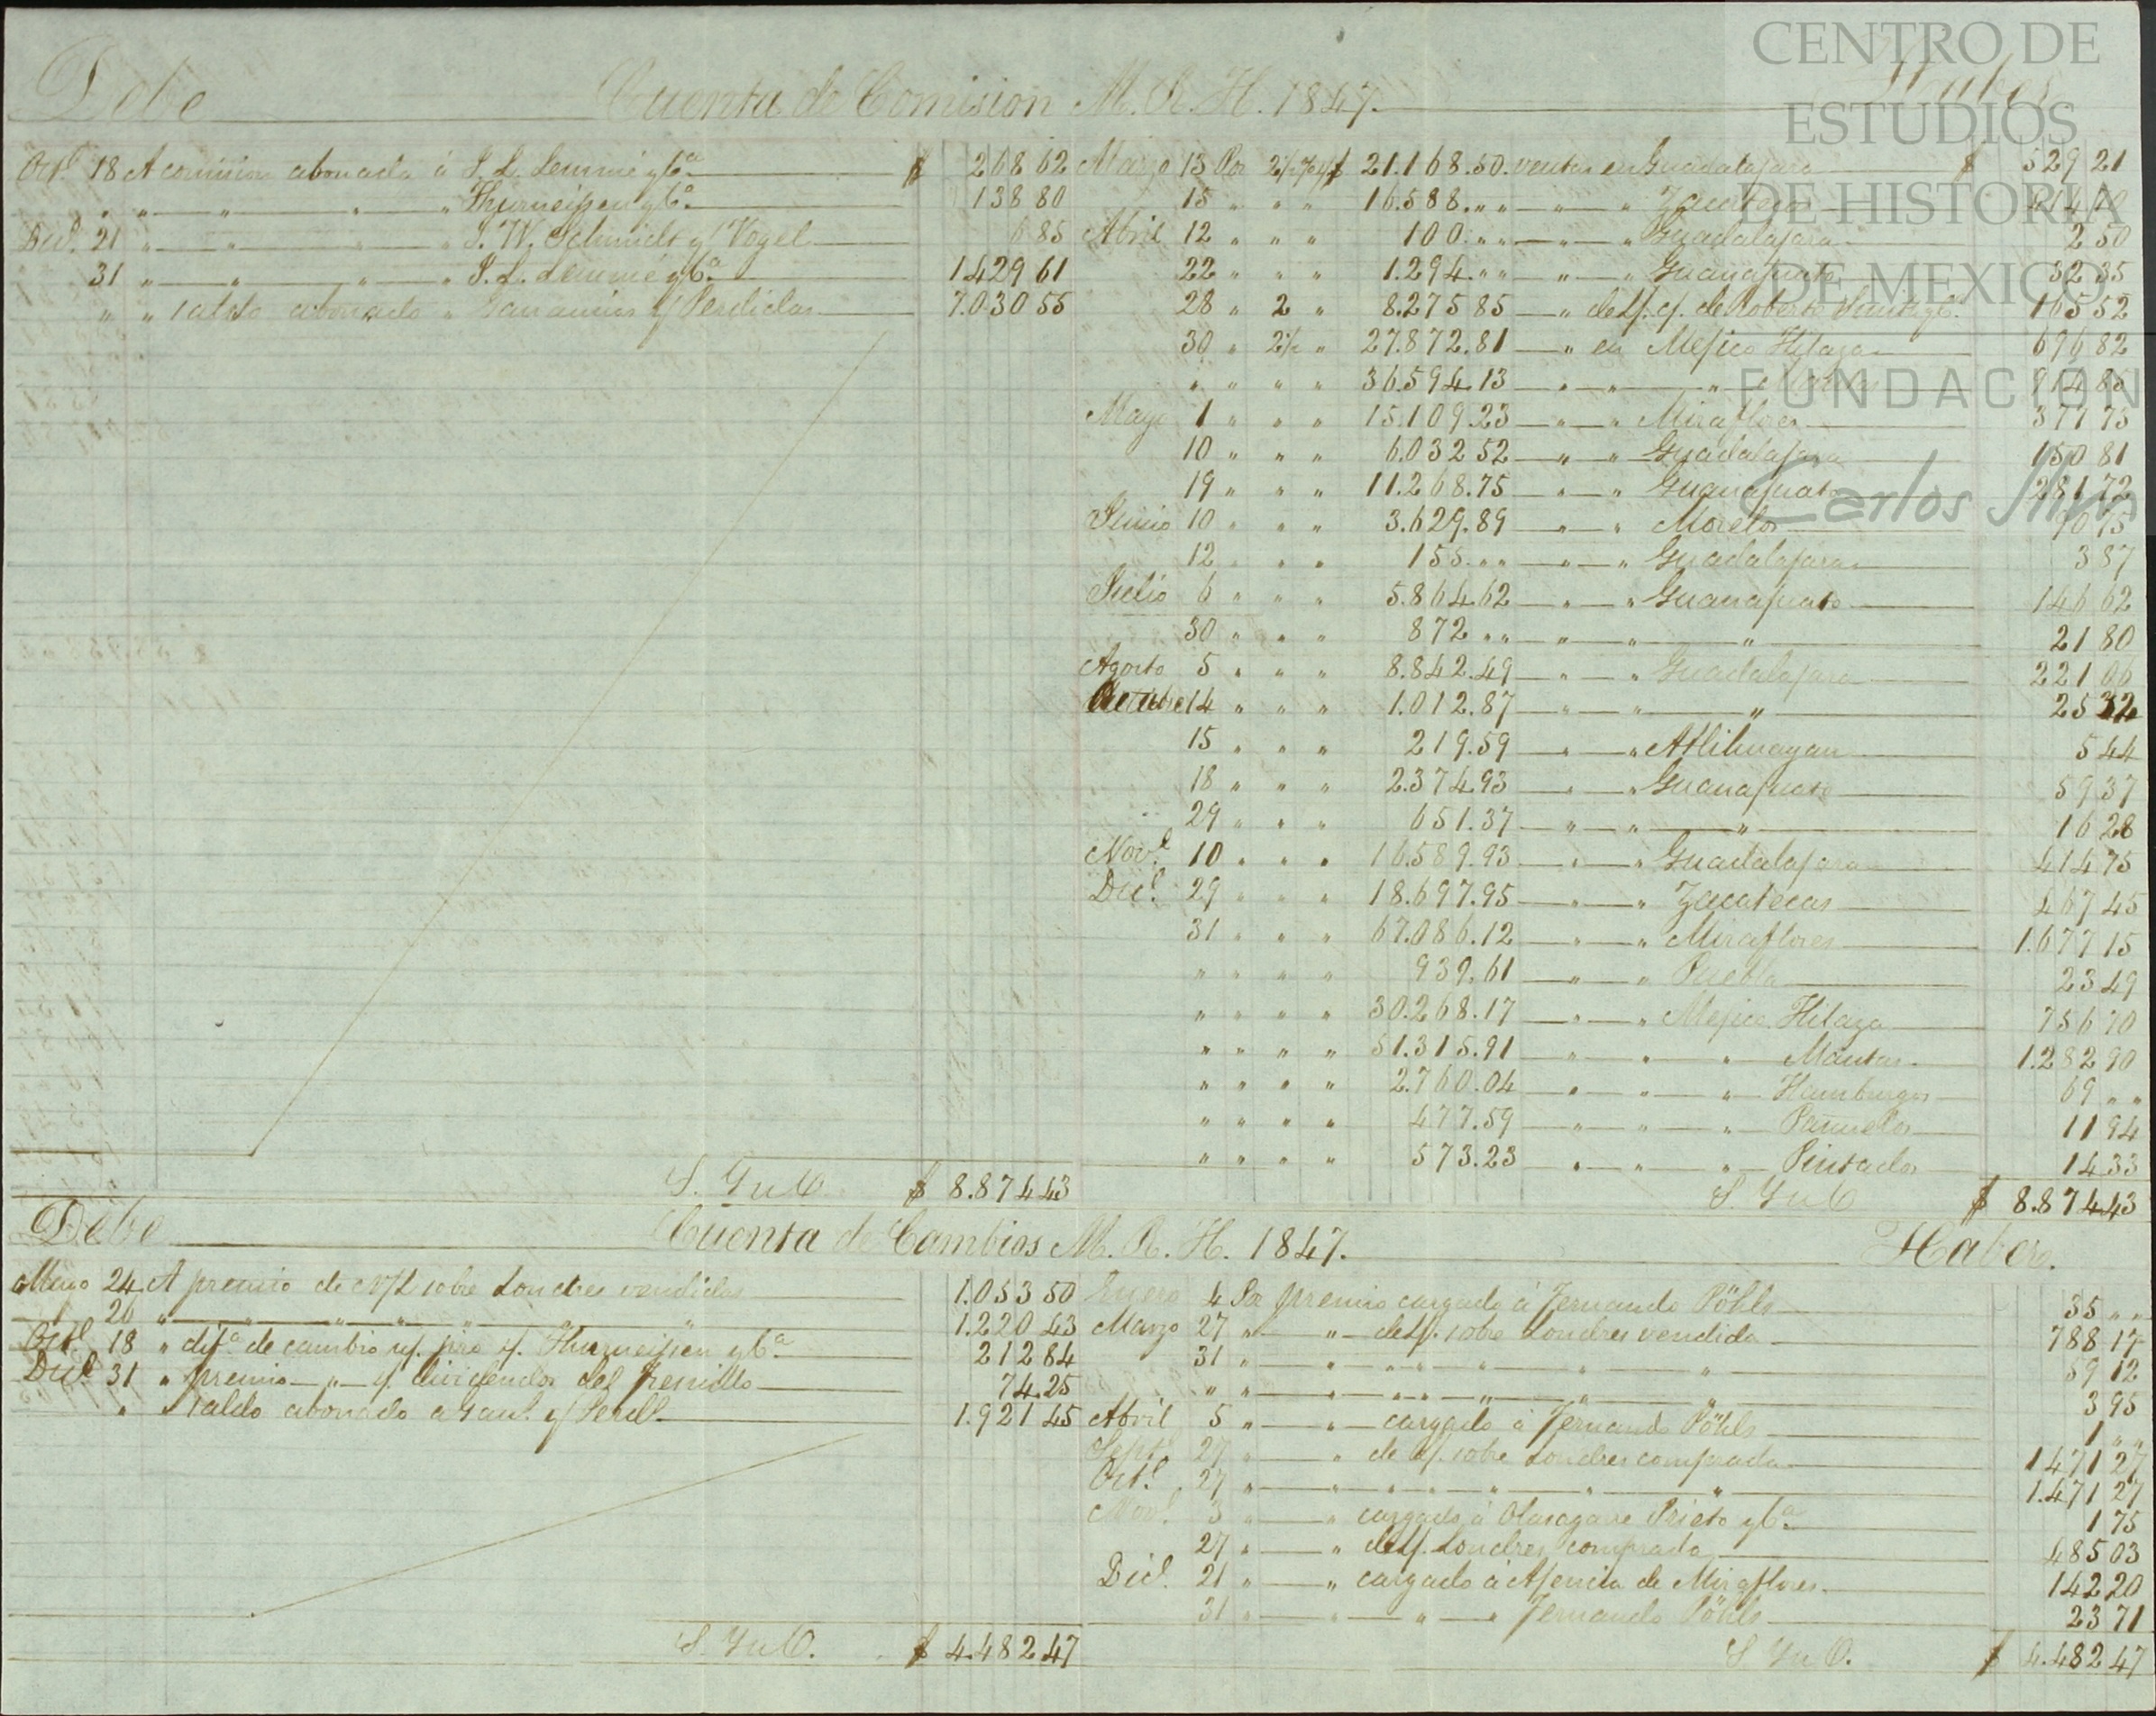 CENTRO DE
ESTUDIOS
DE HISTORIA
DE MEXICO
FUNDACIÓN
Carlos Slim
Debe Cuenta de Comision M. R. H. 1847. Haber
Octe. 18 A comision abonada á S. L. Lemmé y Ca. $ 268 62
" " " " " Thurneissen y Ca. 138 80
Dice. 21 " " " " J. W. Schmidt y Vogel 6 85
31 " " " " S. L. Lemmé y Ca. 1.429 61
" " saldo abonado " Ganancias y Perdidas 7.030 55
S. Y u O. $ 8.874 43
Marzo 13 Por 2½ % s/ $ 21.168.50. ventas en Guadalajara $ 529 21
15 " " " 16.588. " " " " Zacatecas 414 70
Abril 12 " " " 100. " " " " Guadalajara 2 50
22 " " " 1.294. " " " " Guanajuato 32 35
28 " 2 " 8.275 85 " de Roberto 165 52
30 " 2½ " 27.872.81 " en Mejico Hilaza 696 82
" " " " 36.594.13 " " " Mantas 914 85
Mayo 1 " " " 15.109.23 " " Miraflores 377 73
10 " " " 6.032 52 " " Guadalajara 150 81
19 " " " 11.268.75 " " Guanajuato 281 72
Junio 10 " " " 3.629.89 " " Morelos 90 75
12 " " " 155. " " " " Guadalajara 3 87
Julio 6 " " " 5.864.62 " " Guanajuato 146 62
30 " " " 872 " " " " " 21 80
Agosto 5 " " " 8.842.49 " " Guadalajara 221 06
Octubre 14 " " " 1.012.87 " " " 25 32
15 " " " 219.59 " " Atlihuayan 5 44
18 " " " 2.374.93 " " Guanajuato 59 37
29 " " " 651.37 " " " 16 28
Nove. 10 " " " 16.589.93 " " Guadalajara 414 75
Dice. 29 " " " 18.697.95 " " Zacatecas 467 45
31 " " " 67.086.12 " " Miraflores 1.677 15
" " " " 939.61 " " Puebla 23 49
" " " " 30.268.17 " " Mejico Hilaza 756 70
" " " " 51.315.91 " " " Mantas 1.282 90
" " " " 2.760.04 " " " Hamburgos 69 " "
" " " " 477.59 " " " Pañuelos 11 94
" " " " 573.23 " " " Pintados 14 33
S. Y u O $ 8.874.43
Debe Cuenta de Cambios M. R. H. 1847. Haber.
Marzo 24 A premio de sobre Londres vendidas 1.053 50
" 26 " " " " " " 1.220 43
Octe. 18 " difa. de cambio Thurneissen y Ca. 212 84
Dice. 31 " premio " dividendos del Fresnillo 74.25
" " saldo abonado a Gan. y Perd. 1.921 45
S. Y u O. $ 4.482 47
Enero 4 Por premio cargado á Fernando Pöhls 35 " "
Marzo 27 " " sobre Londres vendida 788 17
31 " " " " " " " 59 12
" " " " " " " " 3 95
Abril 5 " " cargado á Fernando Pöhls 1 " "
Septe. 27 " " de sobre Londres comprada 1 471 27
Octe. 27 " " " " " " " 1.471 27
Nove. 3 " " cargado á Olasagarre Prieto y Ca. 1 75
27 " " Londres comprada 485 03
Dice. 21 " " cargado á Ajencia de Miraflores 142 20
31 " " " " Fernando Pöhls 23 71
S. Y u O. $ 4.482 47